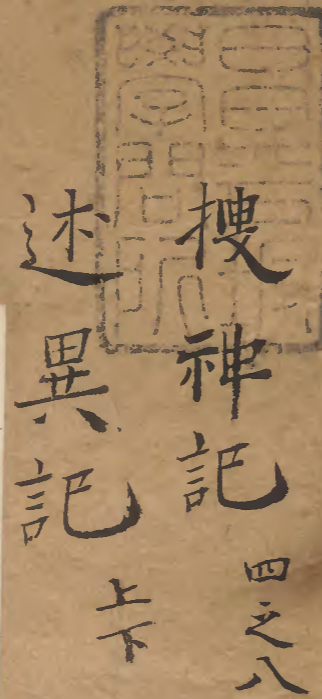 搜神記 四之八
述異記 上下